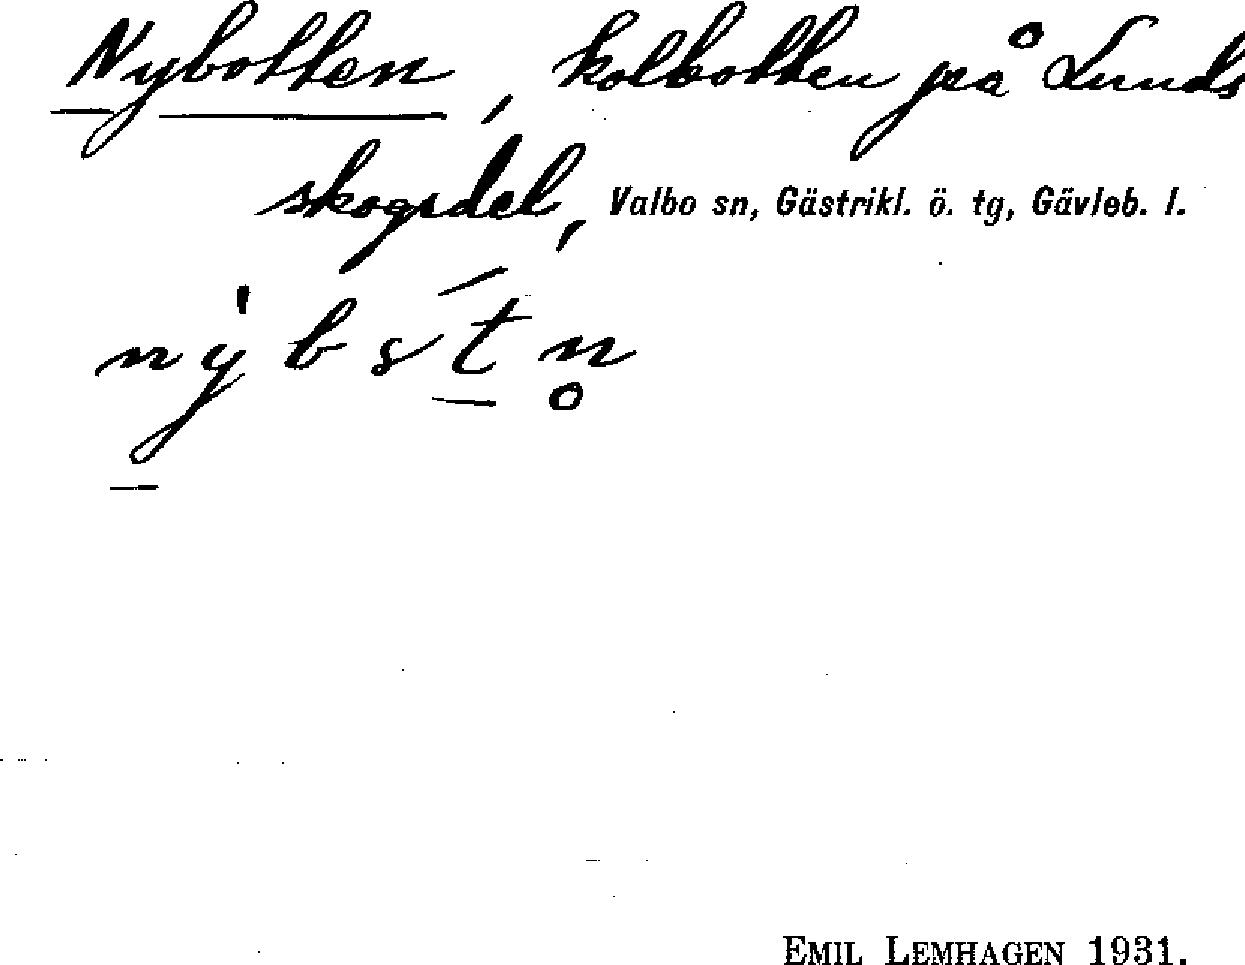 Nybotten, kolbotten på Lunds
skogsdel, Valbo sn, Gästrikl. ö. tg, Gävleb. l.
EMIL LEMHAGEN 1931.